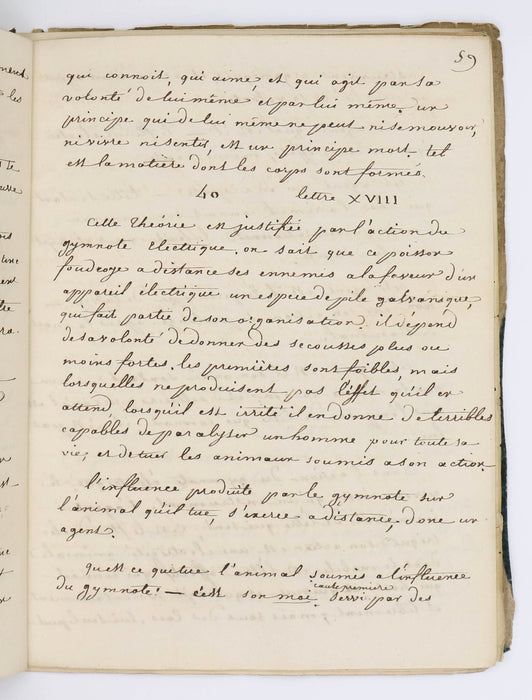 59
qui connoit, qui aime, et qui agit par sa
volonté de lui même et par lui même. un
principe qui de lui même ne peut ni se mouvoir,
ni vivre ni sentir, est un principe mort. tel
est la matière dont les corps sont formés.
40 lettre XVIII
Cette théorie est justifiée par l'action du
gymnote Electrique. on sait que ce poisson
foudroye a distance ses ennemis a la faveur d'un
appareil électrique un espece de pile galvanique,
qui fait partie de son organisation. il dépend
de sa volonté de donner des secousses plus ou
moins fortes, les premières sont foibles, mais
lorsquelles ne produisent pas l'effet qu'il en
attend, lorsqu'il est irrité il en donne de terribles
capables de paralyser un homme pour toute sa
vie, et de tuer les animaux soumis a son action.
l'influence produite par le gymnote sur
l'animal qu'il tue, s'exerce a distance donc un
agent.
quest ce qui tue l'animal soumis a l'influence
du gymnote? — c'est son moi, cause première servi par des